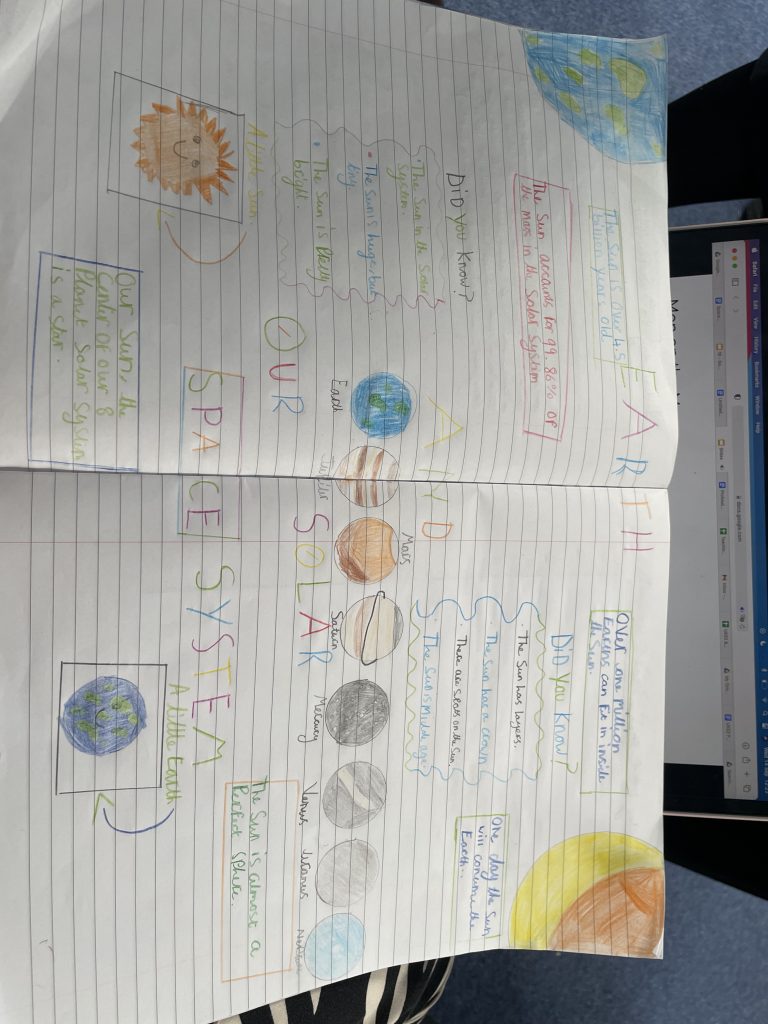 EARTH
AND
OUR SOLAR
SPACE SYSTEM
The Sun is over 4.5
billion years old.
The Sun accounts for 99.86% of
the mass in the Solar System
DiD you know?
• The Sun in the Solar
System.
• The Sun is huge but
tiny
• The Sun is
bright.
A little Sun
Our Sun, the
Center of our 8
Planet Solar System
is a star.
Earth
Jupiter
Mars
Saturn
Mercury
Venus
Uranus
Neptune
Over one million
Earths can fit in inside
the Sun.
DiD you know?
• The Sun has layers.
• The Sun has a crown
• There are spots on the Sun.
• The Sun is middle age
One day the Sun
will consume the
Earth..
A little Earth
The Sun is almost a
Perfect sphere.
Safari File Edit View History Bookmarks Window Help
docs.google.com